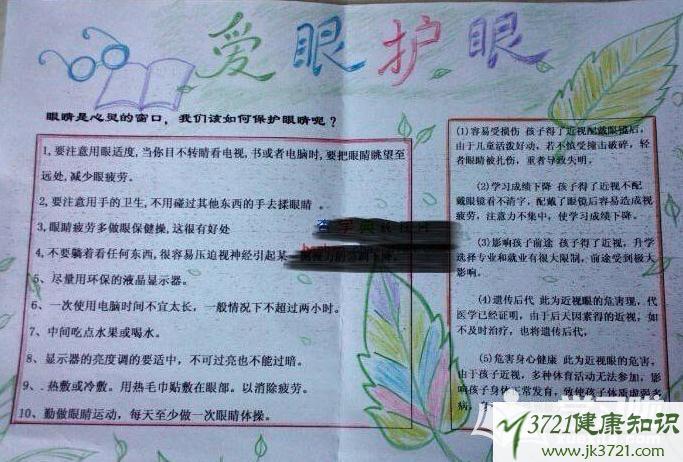 爱眼护眼
眼睛是心灵的窗口，我们该如何保护眼睛呢？
1,要注意用眼适度,当你目不转睛看电视,书或者电脑时,要把眼睛眺望至
远处,减少眼疲劳。
2,要注意用手的卫生,不用碰过其他东西的手去揉眼睛 。
3,眼睛疲劳多做眼保健操,这很有好处
4,不要躺着看任何东西,很容易压迫视神经引起某
5、尽量用环保的液晶显示器。
6、一次使用电脑时间不宜太长，一般情况下不超过两小时。
7、中间吃点水果或喝水。
8、显示器的亮度调的要适中，不可过亮也不能过暗。
9、.热敷或冷敷。用热毛巾贴敷在眼部。以消除疲劳。
10、勤做眼睛运动，每天至少做一次眼睛体操。
(1)容易受损伤 孩子得了近视配戴眼镜后，
由于儿童活泼好动，若不慎受撞击破碎，轻
者眼睛被扎伤，重者导致失明。
(2)学习成绩下降 孩子得了近视不配
戴眼镜看不清字，配戴了眼镜后容易造成视
疲劳，注意力不集中，使学习成绩下降。
(3)影响孩子前途 孩子得了近视，升学
选择专业和就业有很大限制，前途受到极大
影响。
(4)遗传后代 此为近视眼的危害现，代
医学已经证明，由于后天因素得的近视，如
不及时治疗，也将遗传后代，
(5)危害身心健康 此为近视眼的危害，
由于孩子近视，多种体育活动无法参加，影
响孩子身体正常发育，致使孩子体质虚弱多
病，
3721健康知识
www.jk3721.com